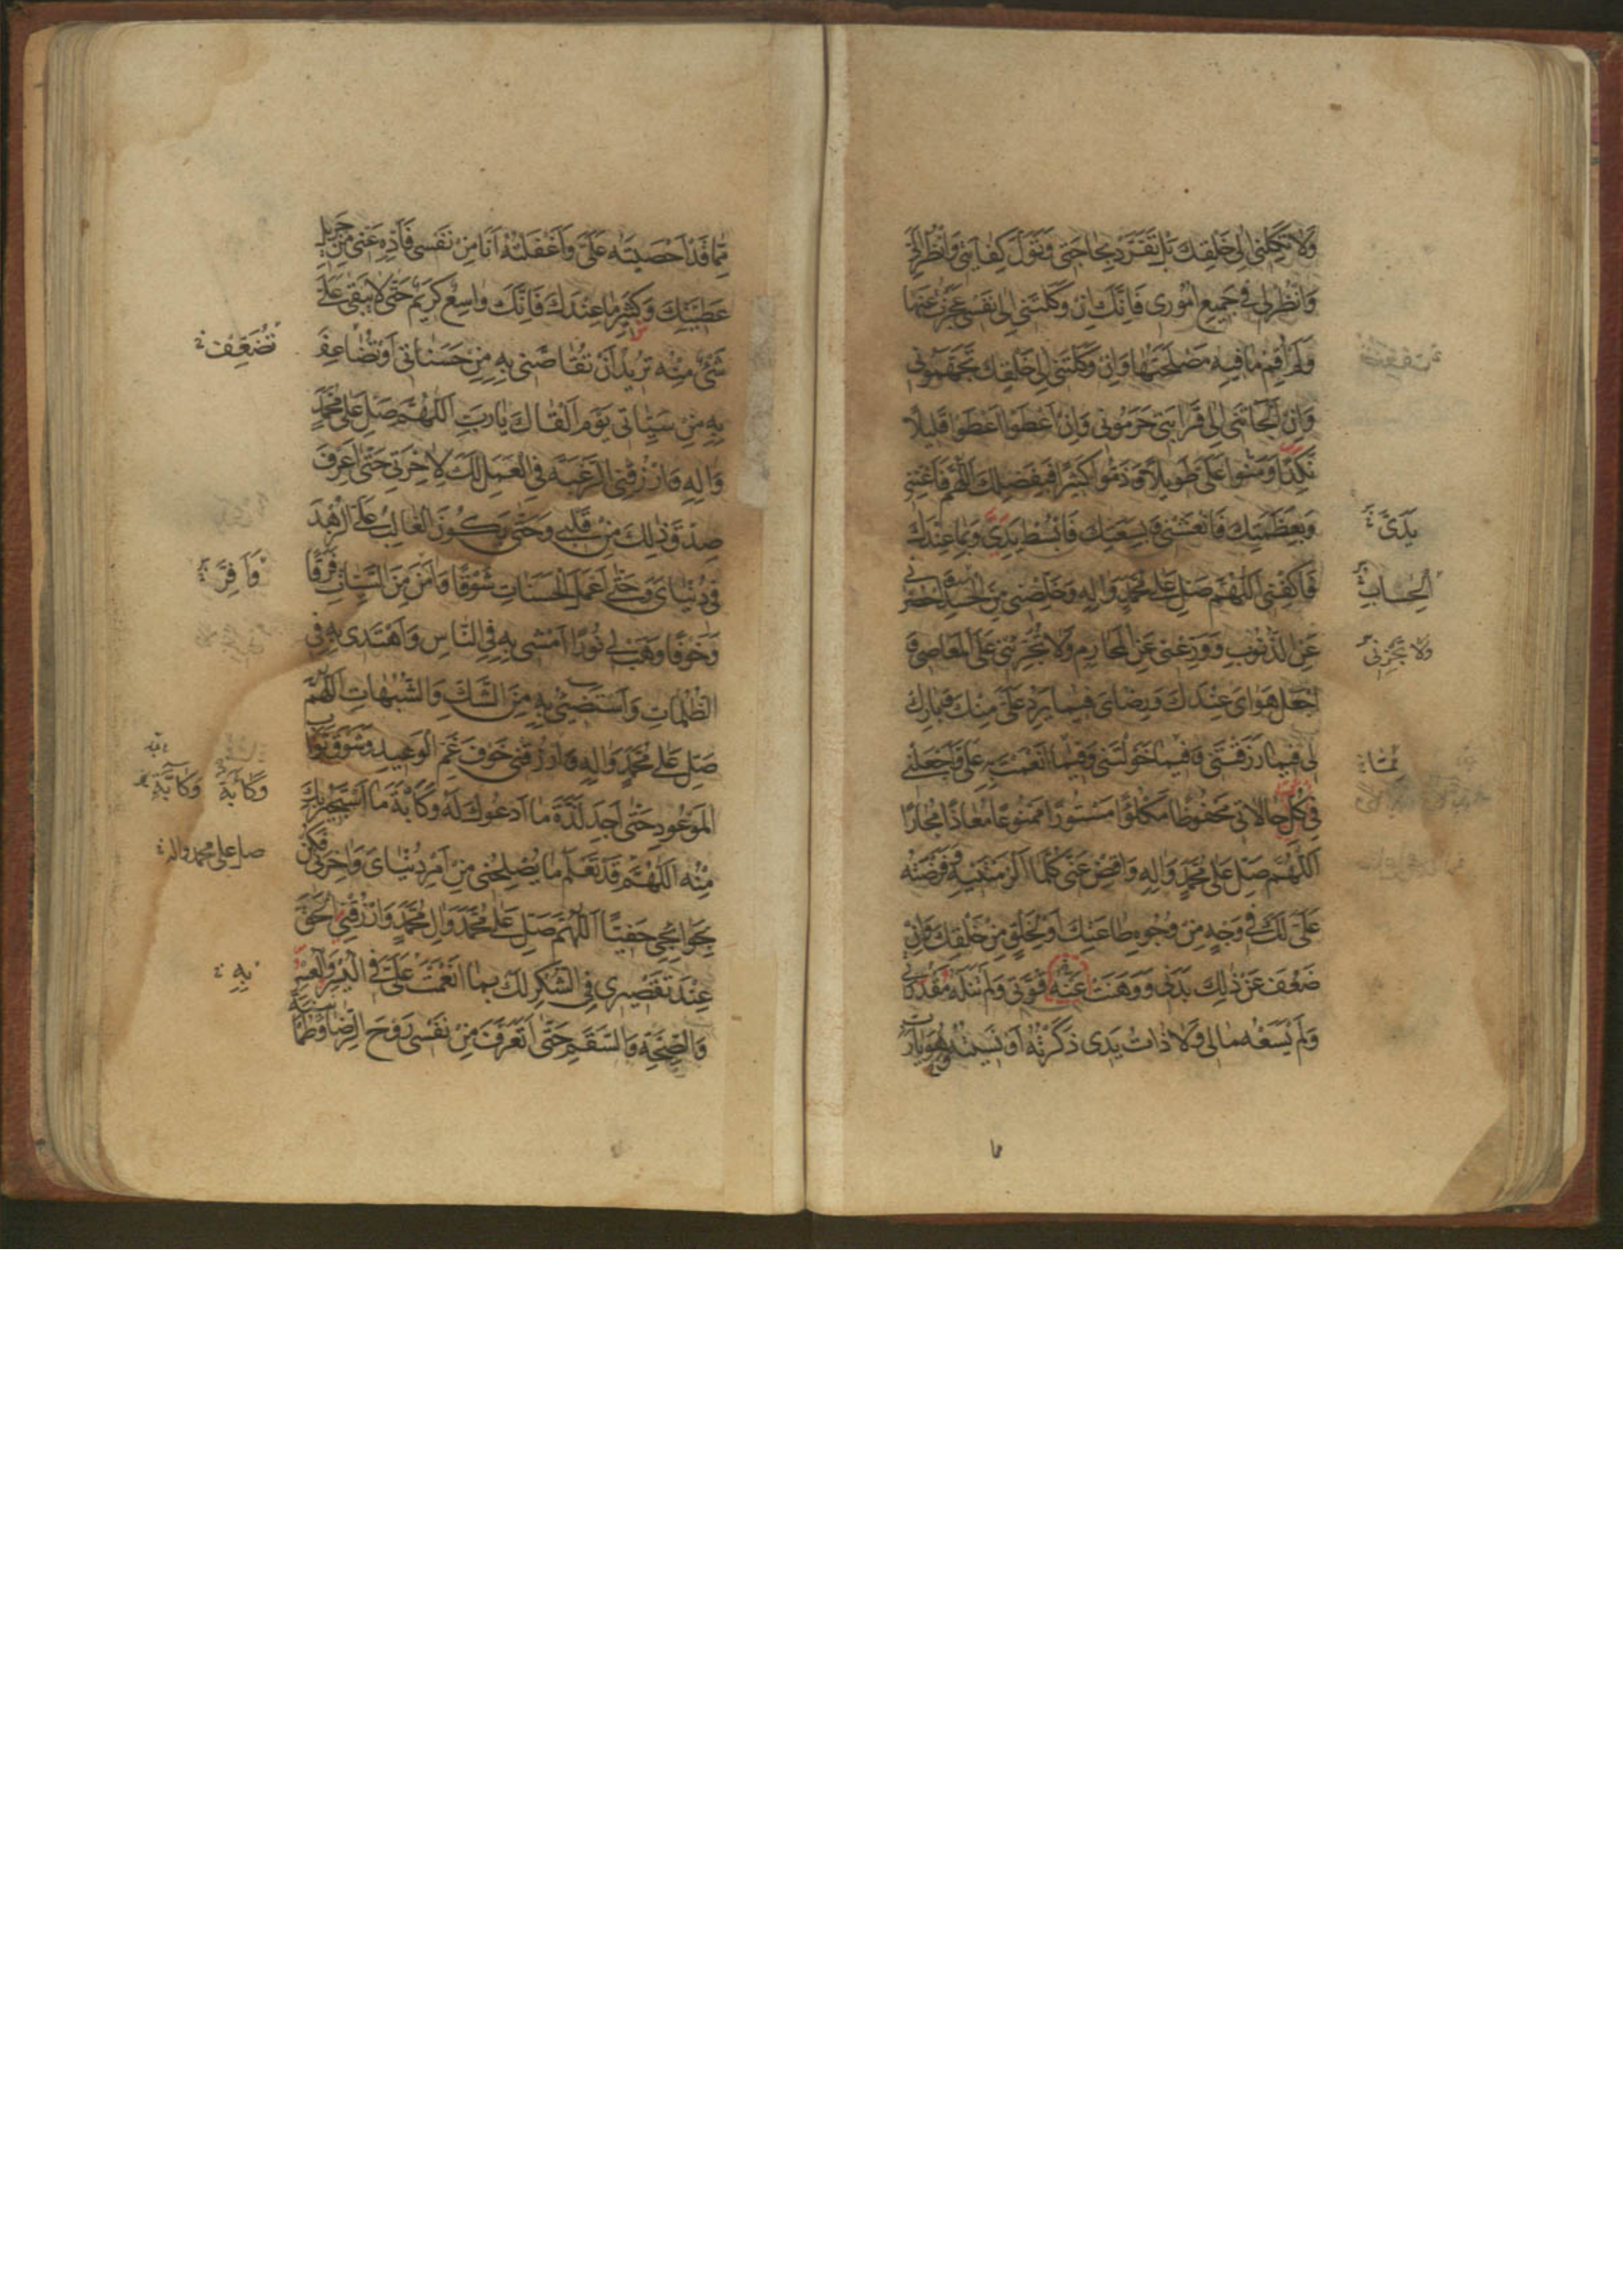 وَلَا تَكِلْنِي اِلى خَلْقِكَ بَلْ تَفَرَّدْ بِحَاجَتِي وَتَوَلَّ كِفَايَتِي وَانْظُرْ اِلَيَّ
وَانْظُرْ لِي فِي جَمِيعِ اُمُورِي فَاِنَّكَ اِنْ وَكَلْتَنِي اِلى نَفْسِي عَجَزْتُ عَنْهَا
وَلَمْ اُقِمْ مَا فِيهِ مَصْلَحَتُهَا وَاِنْ وَكَلْتَنِي اِلى خَلْقِكَ تَجَهَّمُونِي
وَاِنْ اَلْجَاْتَنِي اِلى قَرَابَتِي حَرَمُونِي وَاِنْ اَعْطَوْا اَعْطَوْا قَلِيلًا
نَكِدًا وَمَنُّوا عَلَيَّ طَوِيلًا وَذَمُّوا كَثِيرًا فَبِفَضْلِكَ اللّهُمَّ فَاَغْنِنِي
وَبِعَظَمَتِكَ فَانْعَشْنِي وَبِسَعَتِكَ فَابْسُطْ يَدَيَّ وَبِمَا عِنْدَكَ
يَدَيَّ
فَاكْفِنِي اَللّهُمَّ صَلِّ عَلى مُحَمَّدٍ وَالِهِ وَخَلِّصْنِي مِنَ الْحَسَدِ وَاحْصُرْنِي
عَنِ الذُّنُوبِ وَوَرِّعْنِي عَنِ الْمَحَارِمِ وَلَا تُجَرِّئْنِي عَلَى الْمَعَاصِي وَ
اجْعَلْ هَوَايَ عِنْدَكَ وَرِضَايَ فِيمَا يَرِدُ عَلَيَّ مِنْكَ وَبَارِكْ
لِي فِيمَا رَزَقْتَنِي وَفِيمَا خَوَّلْتَنِي وَفِيمَا اَنْعَمْتَ بِهِ عَلَيَّ وَاجْعَلْنِي
فِي كُلِّ حَالَاتِي مَحْفُوظًا مَكْلُوًّا مَسْتُورًا مَمْنُوعًا مُعَاذًا مُجَارًا
اَللّهُمَّ صَلِّ عَلى مُحَمَّدٍ وَالِهِ وَاقْضِ عَنِّي كُلَّمَا اَلْزَمْتَنِيهِ وَفَرَضْتَهُ
عَلَيَّ لَكَ فِي وَجْهٍ مِنْ وُجُوهِ طَاعَتِكَ اَوْ لِخَلْقٍ مِنْ خَلْقِكَ وَاِنْ
ضَعُفَ عَنْ ذلِكَ بَدَنِي وَوَهَنَتْ عَنْهُ قُوَّتِي وَلَمْ تَنَلْهُ مَقْدُرَتِي
وَلَمْ يَسَعْهُ مَالِي وَلَا ذَاتُ يَدِي ذَكَرْتُهُ اَوْ نَسِيتُهُ وَهُوَ يَا رَبِّ
مِمَّا قَدْ اَحْصَيْتَهُ عَلَيَّ وَاَغْفَلْتُهُ اَنَا مِنْ نَفْسِي فَاَدِّهِ عَنِّي مِنْ جَزِيلِ
عَطِيَّتِكَ وَكَثِيرِ مَا عِنْدَكَ فَاِنَّكَ وَاسِعٌ كَرِيمٌ حَتّى لَا يَبْقى عَلَيَّ
شَيْءٌ مِنْهُ تُرِيدُ اَنْ تُقَاصَّنِي بِهِ مِنْ حَسَنَاتِي اَوْ تُضَاعِفَ
تُضَعِّفَ
بِهِ مِنْ سَيِّئَاتِي يَوْمَ اَلْقَاكَ يَا رَبِّ اَللّهُمَّ صَلِّ عَلى مُحَمَّدٍ
وَالِهِ وَارْزُقْنِي الرَّغْبَةَ فِي الْعَمَلِ لَكَ لِاخِرَتِي حَتّى اَعْرِفَ
صِدْقَ ذلِكَ مِنْ قَلْبِي وَحَتّى يَكُونَ الْغَالِبُ عَلَيَّ الزُّهْدَ
فِي دُنْيَايَ وَحَتّى اَعْمَلَ الْحَسَنَاتِ شَوْقًا وَامَنَ مِنَ السَّيِّئَاتِ فَرَقًا
وَخَوْفًا وَهَبْ لِي نُورًا اَمْشِي بِهِ فِي النَّاسِ وَاَهْتَدِي بِهِ فِي
الظُّلُمَاتِ وَاَسْتَضِيءُ بِهِ مِنَ الشَّكِّ وَالشُّبُهَاتِ اَللّهُمَّ
صَلِّ عَلى مُحَمَّدٍ وَالِهِ وَارْزُقْنِي خَوْفَ غَمِّ الْوَعِيدِ وَشَوْقَ ثَوَابِ
الْمَوْعُودِ حَتّى اَجِدَ لَذَّةَ مَا اَدْعُوكَ لَهُ وَكَابَةَ مَا اَسْتَجِيرُ بِكَ
وَكَابَةَ
مِنْهُ اَللّهُمَّ قَدْ تَعْلَمُ مَا يُصْلِحُنِي مِنْ اَمْرِ دُنْيَايَ وَاخِرَتِي فَكُنْ
صل على محمد واله
بِحَوَائِجِي حَفِيًّا اَللّهُمَّ صَلِّ عَلى مُحَمَّدٍ وَالِ مُحَمَّدٍ وَارْزُقْنِي الْحَقَّ
عِنْدَ تَقْصِيرِي فِي الشُّكْرِ لَكَ بِمَا اَنْعَمْتَ عَلَيَّ فِي الْيُسْرِ وَالْعُسْرِ
بِهِ
وَالصِّحَّةِ وَالسَّقَمِ حَتّى اَتَعَرَّفَ مِنْ نَفْسِي رَوْحَ الرِّضَا وَطُمَأْنِينَةَ